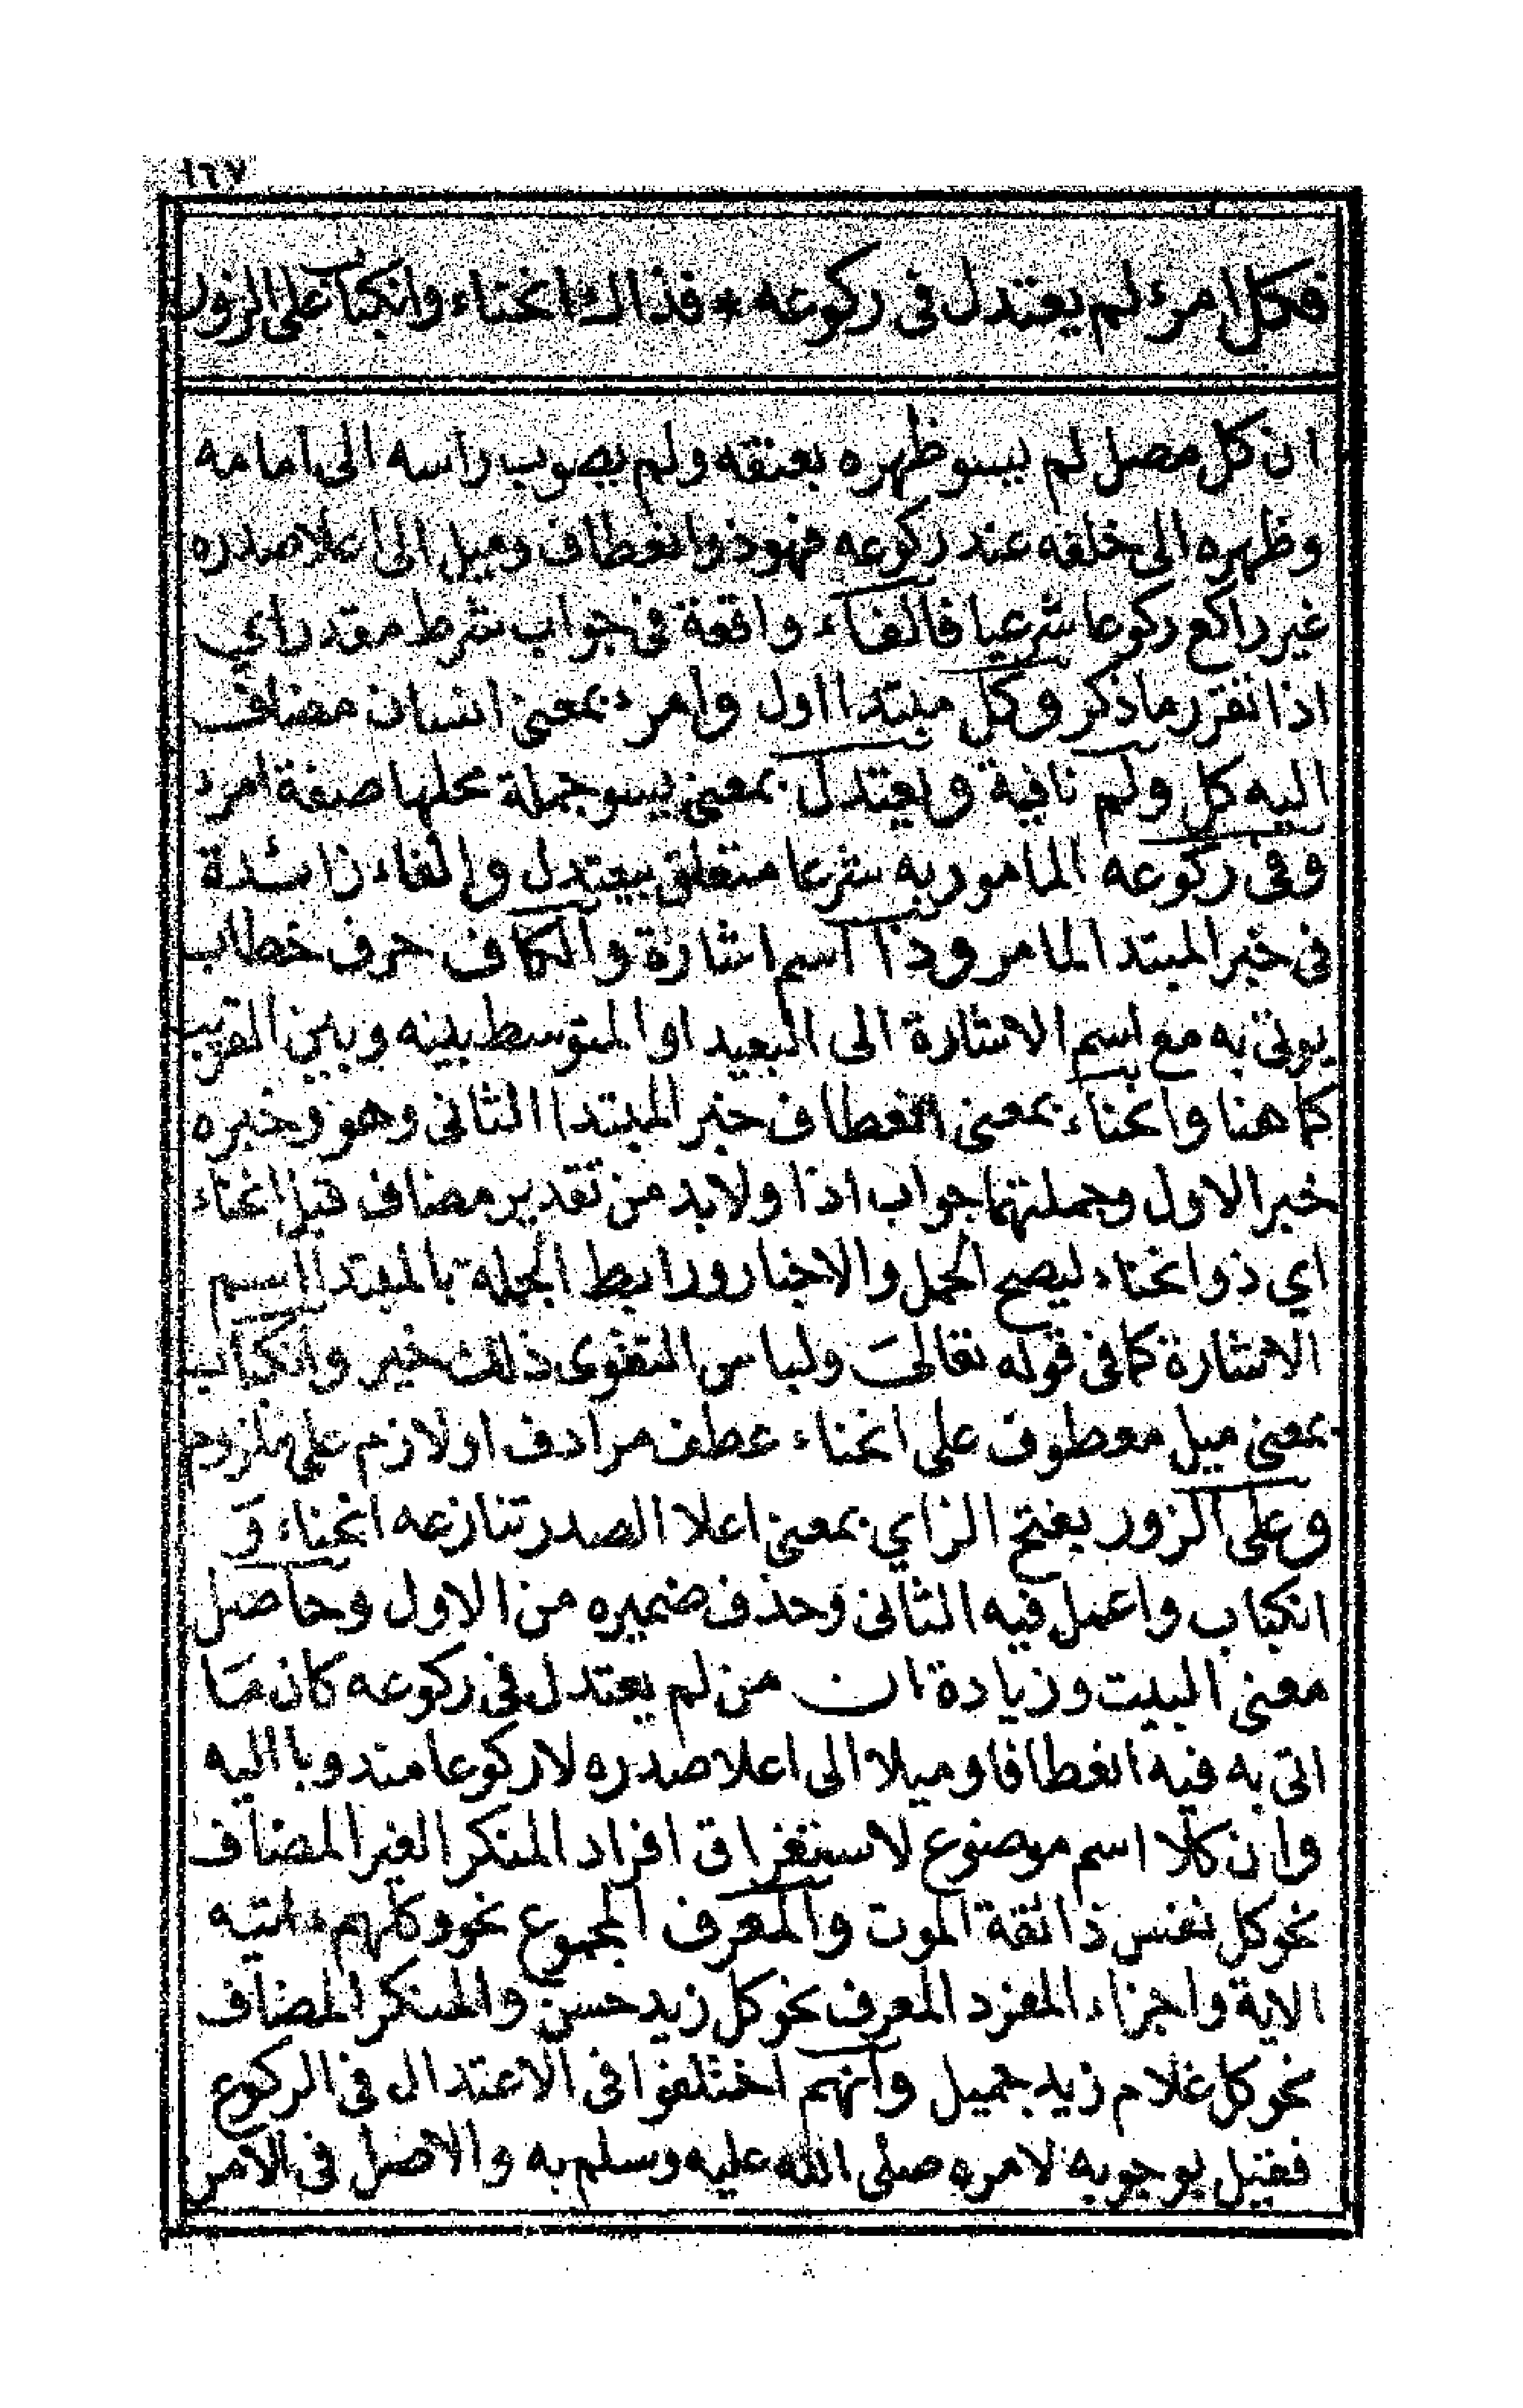 ١٦٧
فكل امرء لم يعتدل فى ركوعه * فذاك انحناء وانكباب على الزور
ان كل مصل لم يسو ظهره بعنقه ولم يصوب راسه الى امامه
وظهره الى خلفه عند ركوعه فهو ذو انعطاف وميل الى اعلا صدره
غير راكع ركوعا شرعيا فالفاء واقعة فى جواب شرط مقدر اي
اذا تقرر ما ذكر وكل مبتدا اول وامرء بمعنى انسان مضاف
اليه كل ولم نافية ويعتدل بمعنى يسو جملة محلها صفة امرء
وفى ركوعه المامور به شرعا متعلق بيعتدل والفاء زائدة
فى خبر المبتدا لما مر وذا اسم اشارة والكاف حرف خطاب
يوتى به مع اسم الاشارة الى البعيد او المتوسط بينه وبين القريب
كما هنا وانحناء بمعنى انعطاف خبر المبتدا الثانى وهو وخبره
خبر الاول وجملتهما جواب اذا ولابد من تقدير مضاف قبل انحناء
اي ذو انحناء ليصح الحمل والاخبار ورابط الجملة بالمبتدا اسم
الاشارة كما فى قوله تعالى ولباس التقوى ذلك خير وانكباب
بمعنى ميل معطوف على انحناء عطف مرادف او لازم على ملزوم
وعلى الزور بفتح الزاي بمعنى اعلا الصدر تنازعه انحناء و
انكباب واعمل فيه الثانى وحذف ضميره من الاول وحاصل
معنى البيت وزيادة ان من لم يعتدل فى ركوعه كان ما
اتى به فيه انعطافا وميلا الى اعلا صدره لا ركوعا مندوبا اليه
وان كلا اسم موضوع لاستغراق افراد المنكر الغير المضاف
نحو كل نفس ذائقة الموت والمعرف المجموع نحو وكلهم ءاتيه
الاية واجزاء المفرد المعرف نحو كل زيد حسن والمنكر المضاف
نحو كل غلام زيد جميل وانهم اختلفوا فى الاعتدال فى الركوع
فقيل بوجوبه لامره صلى الله عليه وسلم به والاصل فى الامر